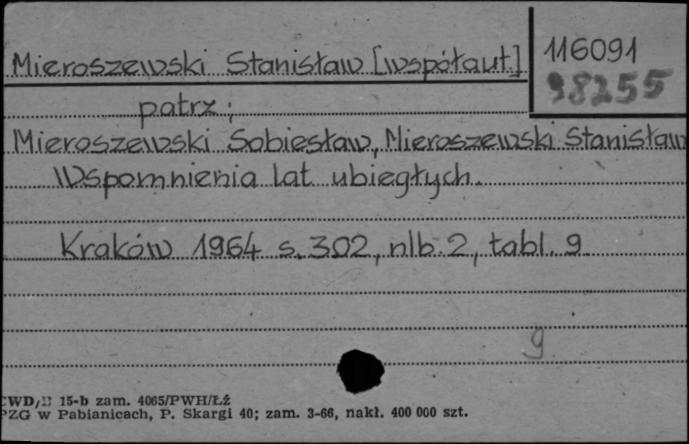 Mieroszewski Stanisław [współaut.]
116091
98255
patrz:
Mieroszewski Sobiesław, Mieroszewski Stanisław
Wspomnienia lat ubiegłych.
Kraków 1964 s. 302, nlb. 2, tabl. 9
9
15-b zam. 4065/PWH/Łź
PZG w Pabianicach, P. Skargi 40; zam. 3-66, nakł. 400 000 szt.